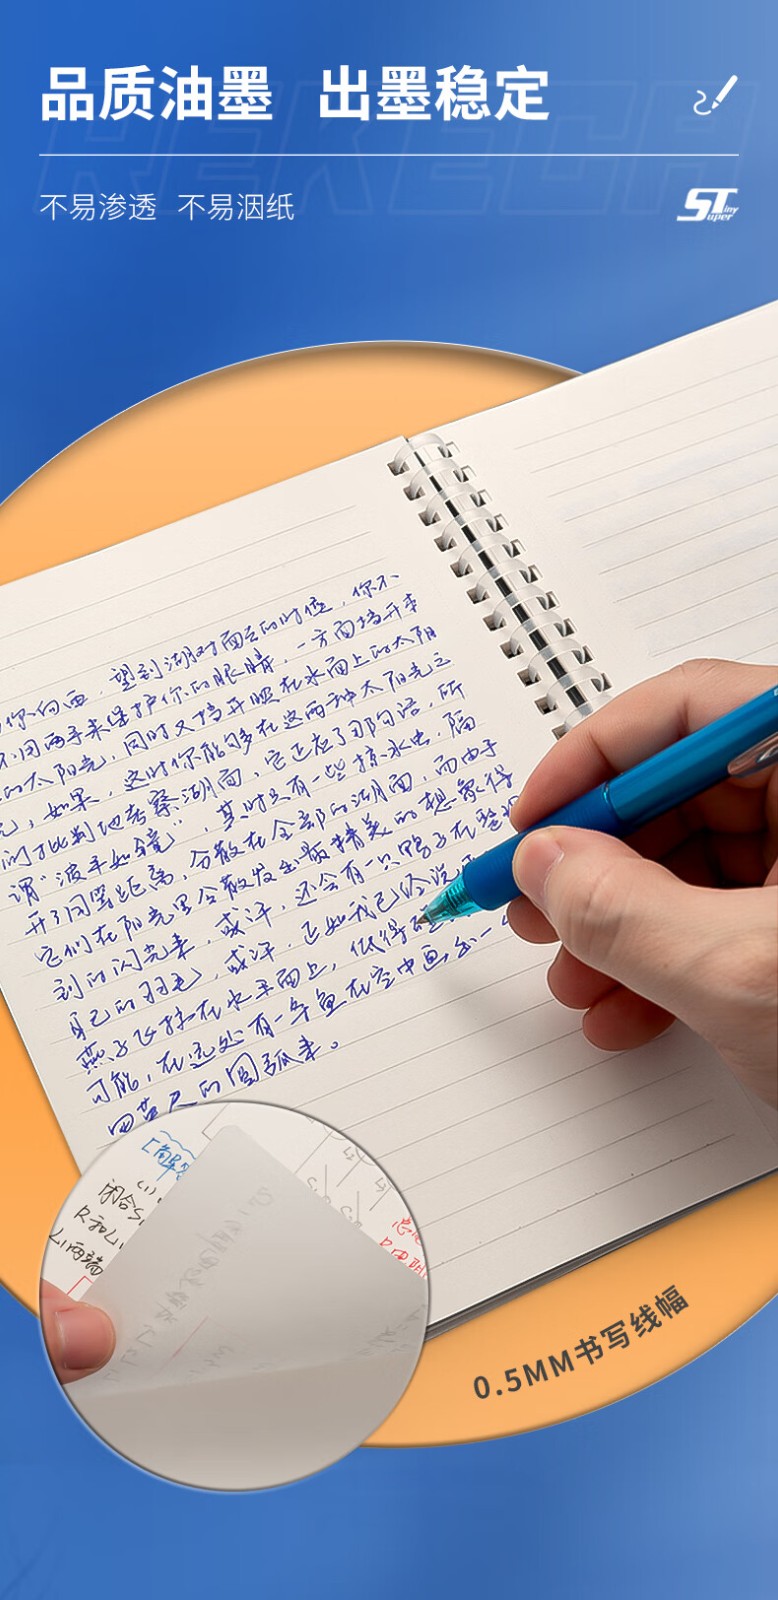 品质油墨 出墨稳定
不易渗透 不易洇纸
STiny
Super
你向西，望到湖对面去的时候，你不
不用两手来保护你的眼睛，一方面挡开本
的太阳光，同时又挡开照在水面上的太阳
光，如果，这时你能够在这两种太阳光之
们批判地考察湖面，它正应了那句话，所
谓“波平如镜”，其时只有一些掠水虫，隔
开了同等距离，分散在全部的湖面，而由于
它们在阳光里会散发出最精美的想象得
到的闪光来，或许，还会有一只鸭子在整理
自己的羽毛，或许，正如我已经说
燕子飞掠在水平面上，低得碰
可能，在远处有一条鱼在空中画出一个
四英尺的圆弧来。
[解
(1)
闭合S
R和L1
L1两端
0.5MM书写线幅